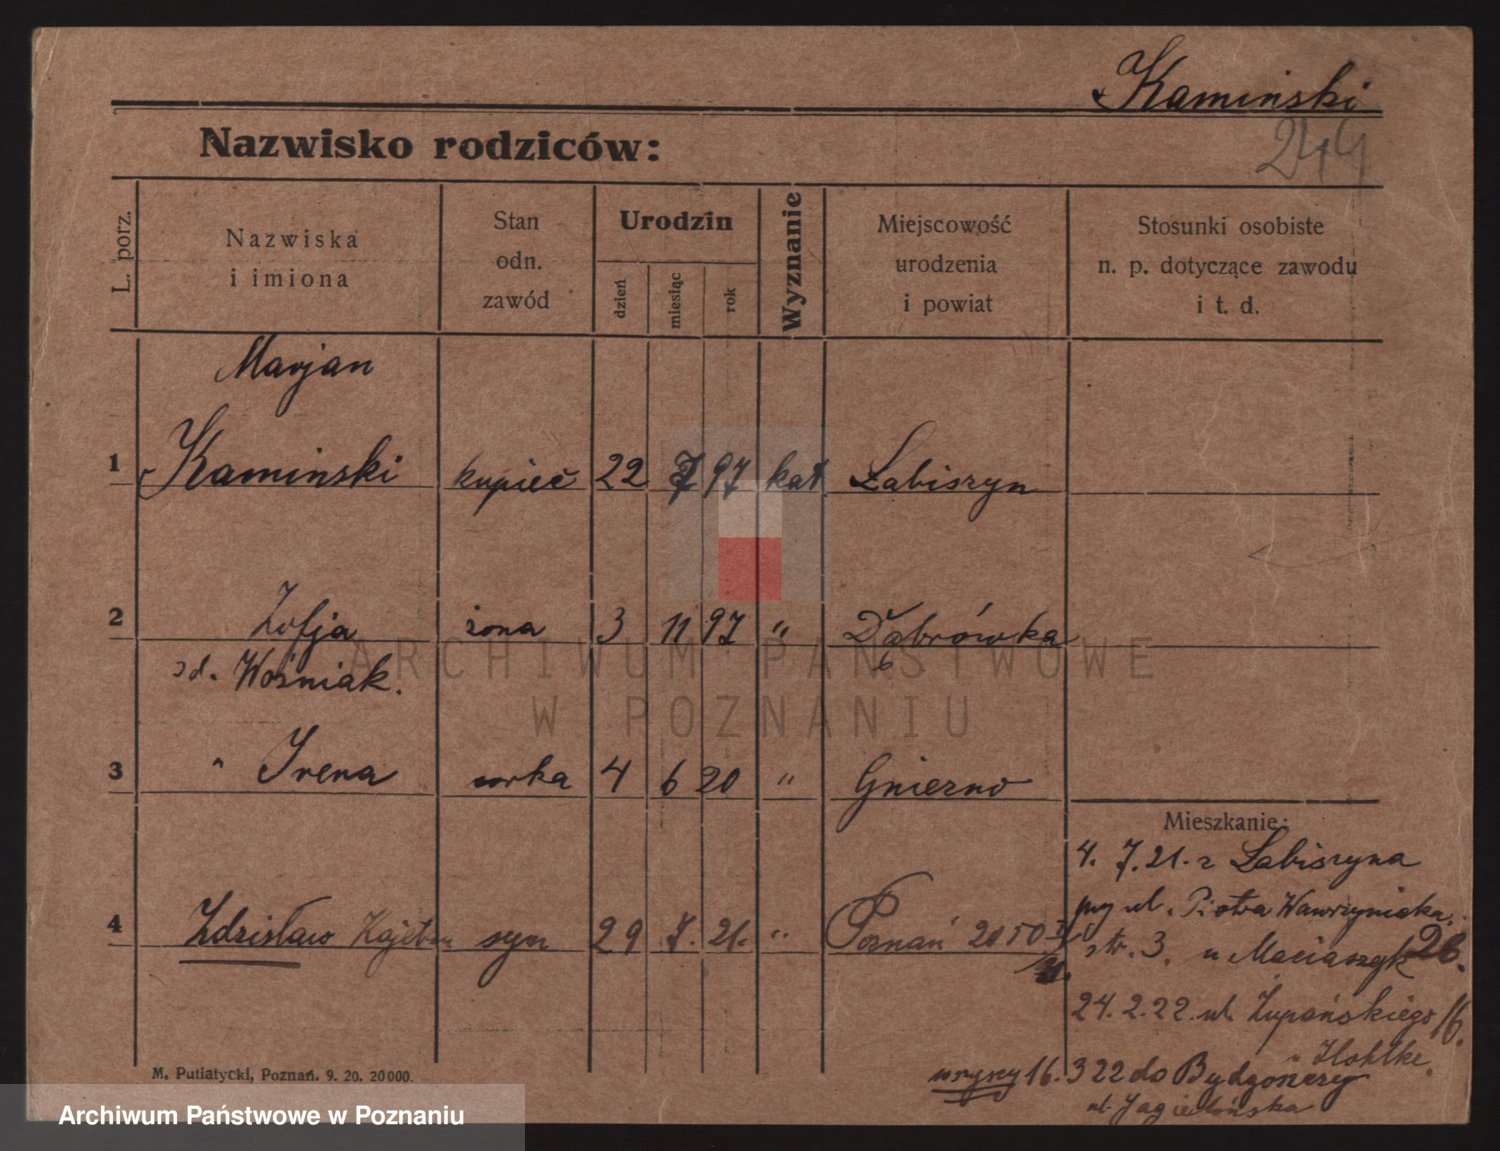 Kaminski
244
Nazwisko rodziców:
L. porz.
Nazwiska
i imiona
Stan
odn.
zawód
Urodzin
dzień
miesiąc
rok
Wyznanie
Miejscowość
urodzenia
i powiat
Stosunki osobiste
n. p. dotyczące zawodu
i t. d.
Marjan
1 Kaminski kupiec 22 7 97 kat Łabiszyn
2 Zofja żona 3 11 97 " Dąbrówka
zd. Woźniak.
3 " Irena corka 4 6 20 " Gniezno
Mieszkanie:
4. 7. 21. z Łabiszyna
przy ul. Piotra Wawrzyniaka
4 Zdzisław Kajetan syn 29 7. 21. " Poznań 2050
str. 3. u Maciaszyk 26.
24. 2. 22. ul. Żupańskiego 16.
u Hohlke
wszyscy 16. 3 22 do Bydgoszczy
ul. Jagiellońska
M. Putiatycki, Poznań. 9. 20. 20000.
ARCHIWUM PAŃSTWOWE
W POZNANIU
Archiwum Państwowe w Poznaniu